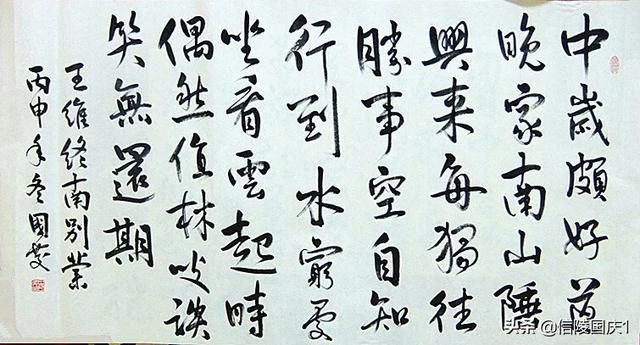 中歲頗好道
晚家南山陲
興来每獨往
勝事空自知
行到水窮處
坐看雲起時
偶然值林叟談
笑無還期
王維終南别業
丙申年冬國慶
头条 @信陵国庆1